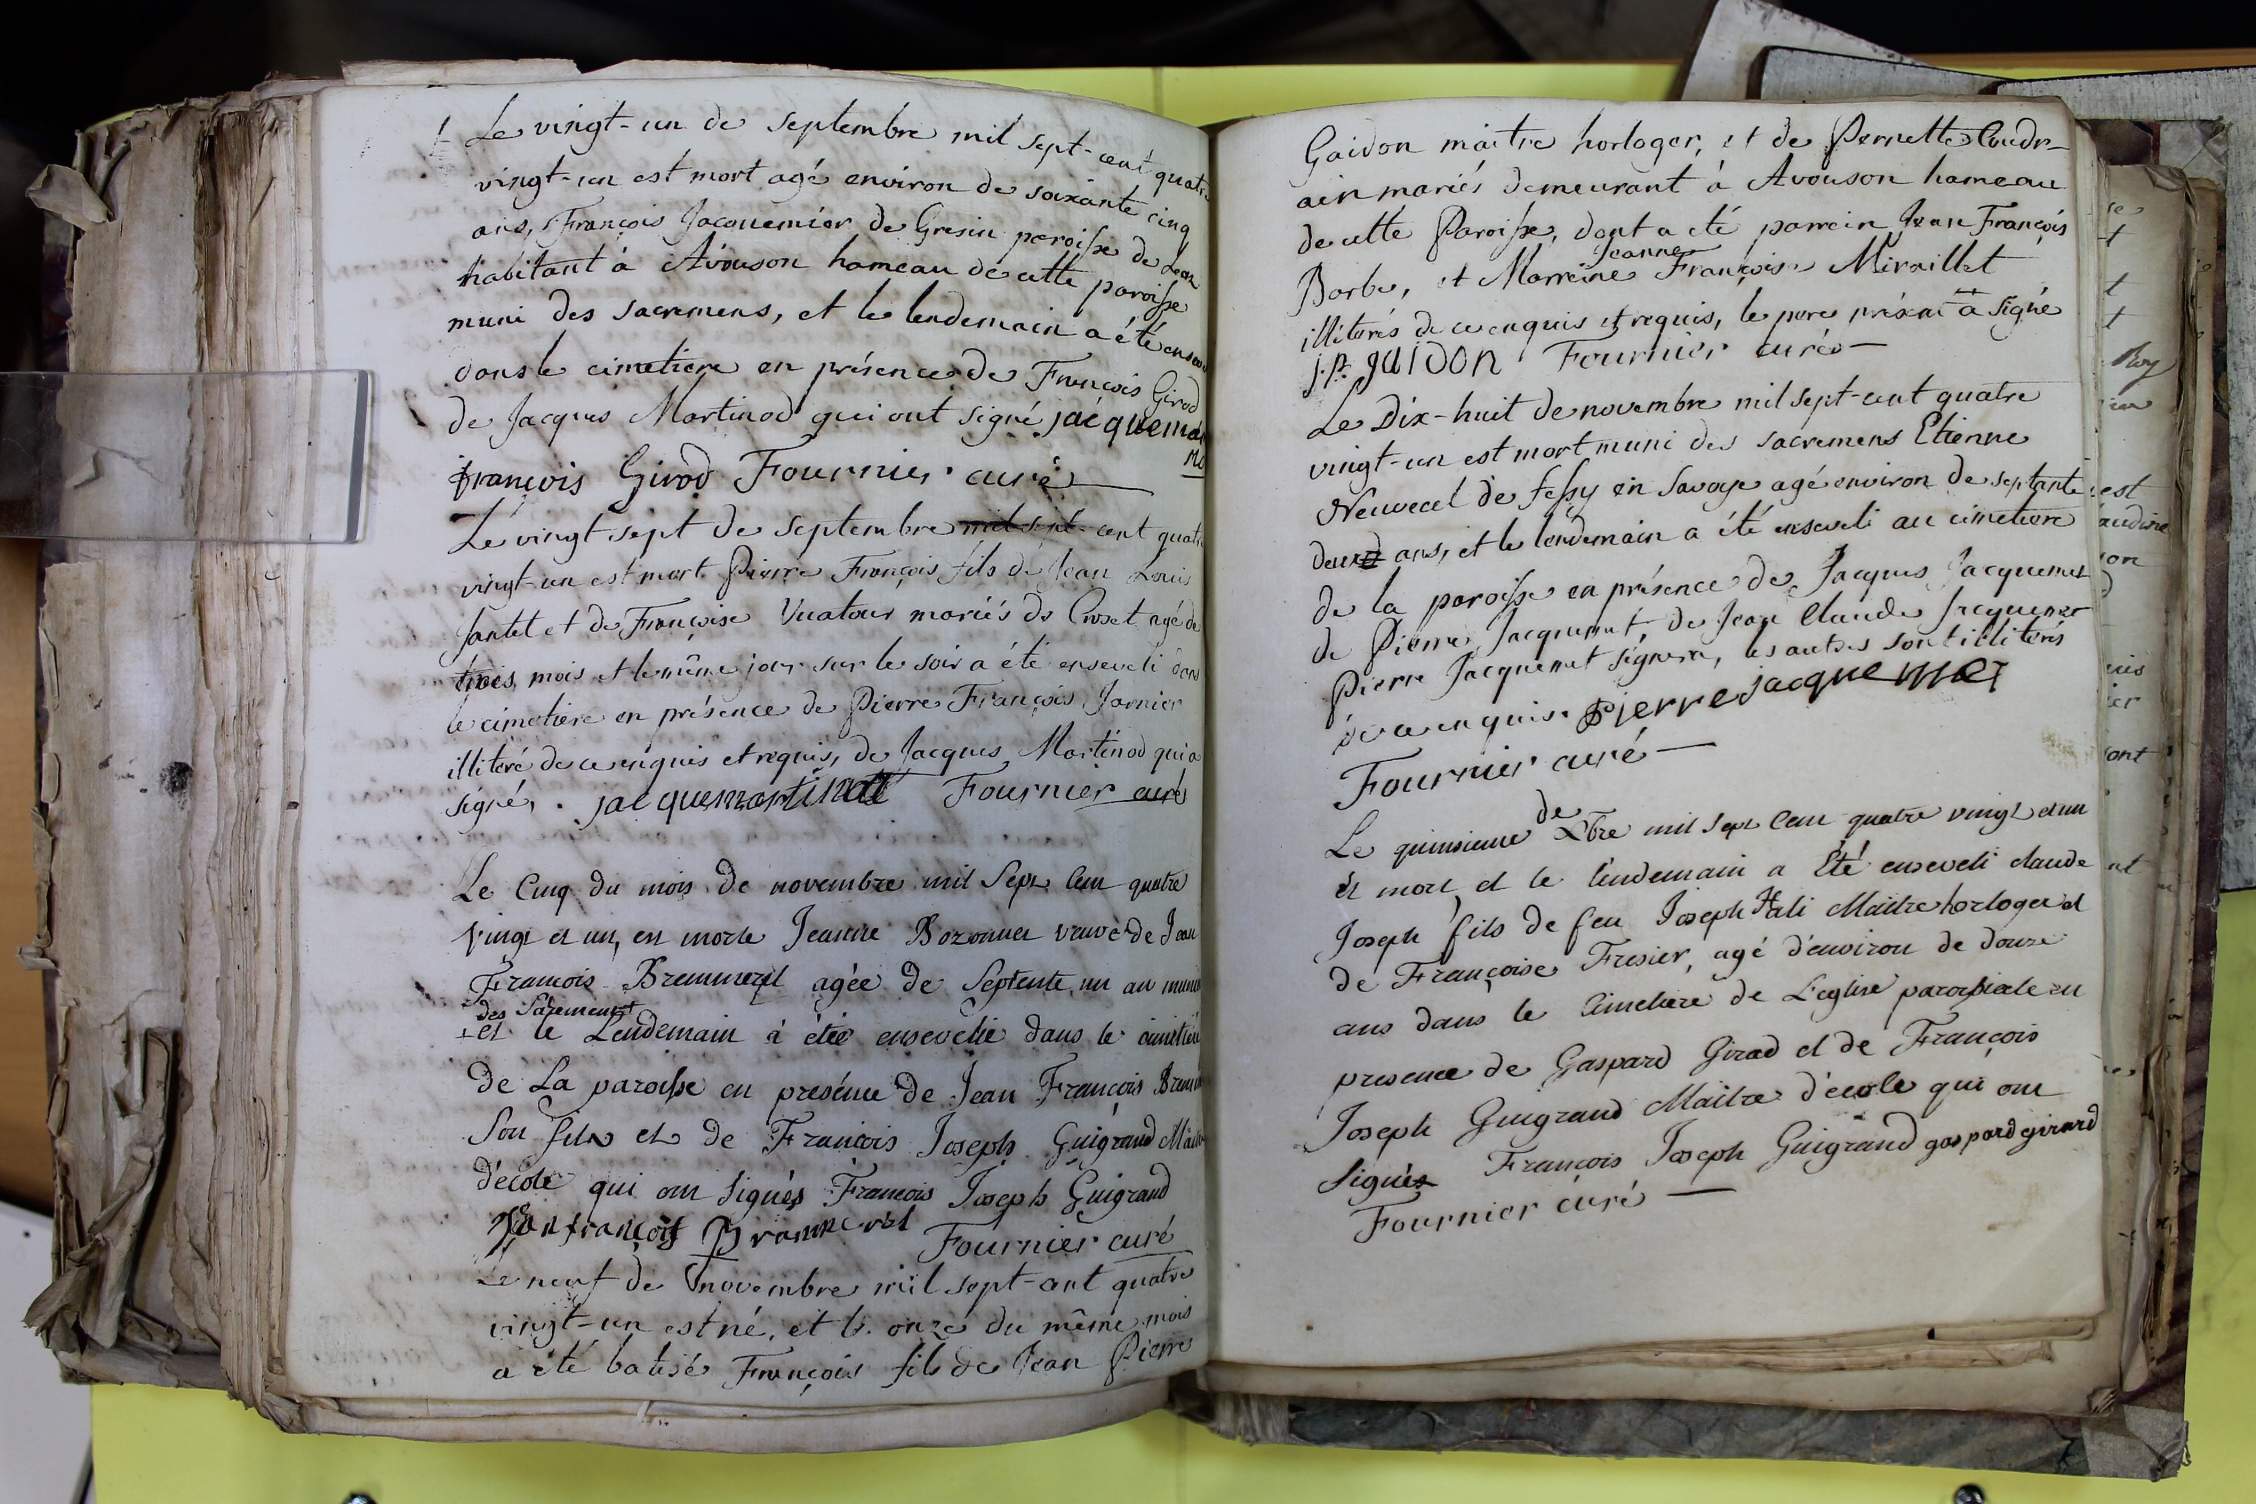 Le vingt-un de septembre mil sept-cent quatre
vingt-un est mort agé environ de soixante cinq
ans, François Jacquemier de Gresin paroisse de Lean
habitant à Avouson hameau de cette paroisse
muni des sacremens, et le lendemain a été enseveli
dans le cimetiere en présence de François Girod
de Jacques Martinod qui ont signé jacquemar
françois Girod Fournier curé
Le vingt sept de septembre mil sept-cent quatre
vingt-un est mort Pierre François fils de Jean Louis
Jantet et de Françoise Vuatour mariés de Croset agé de
trois mois et le même jour sur le soir a été enseveli dans
le cimetiere en présence de Pierre François Jarnier
illiteré de ce enquis et requis, de Jacques Martinod qui a
signé, jacquemartinod Fournier curé
Le Cinq du mois de novembre mil Sept Cent quatre
vingt et un, est morte Jeanne Bozonnet veuve de Jean
François Brammerel agée de Septente un an munie
des Sacrements
et le Lendemain à étée ensevelie dans le cimitiere
de La paroisse en presénce de Jean François Bram
Son fils et de François Joseph Guigrand Maitre
d'école qui ont Signés François Joseph Guigrand
Jean françois Brammerel Fournier curé
Le neuf de novembre mil sept-cent quatre
vingt-un est né, et le onze du même mois
a été batisé François fils de Jean Pierre
Gaidon maitre horloger, et de Pernette Coudr-
ain mariés demeurant à Avouson hameau
de cette Paroisse, dont a été parrain Jean François
Jeanne
Barbe, et Marreine Françoise Miraillet
illiterés de ce enquis et requis, le pere présent a signé
j.p. gaidon Fournier curé
Le Dix-huit de novembre mil sept-cent quatre
vingt-un est mort muni des sacremens Etienne
Neuvecel de fessy en Savoye agé environ de septante
deux ans, et le lendemain a été enseveli au cimetiere
de la paroisse en présence de Jacques Jacquemet
de Pierre Jacquemet, de Jean Claude Jacquemet
Pierre Jacquemet signera, les autres sont illiterés
de ce enquis. pierre jacquemet
Fournier curé
de
Le quinsieme Xbre mil Sept Cent quatre vingt et un
est mort et le lendemain a Eté enseveli claude
Joseph fils de feu Joseph Hali Maitre horloger et
de Françoise Fresier, agé d'environ de douze
ans dans le Cimetiere de L'eglise paroissiale en
presence de Gaspard Girad et de François
Joseph Guigrand Maitre d'école qui ont
Signés François Joseph Guigrand gaspard girard
Fournier curé